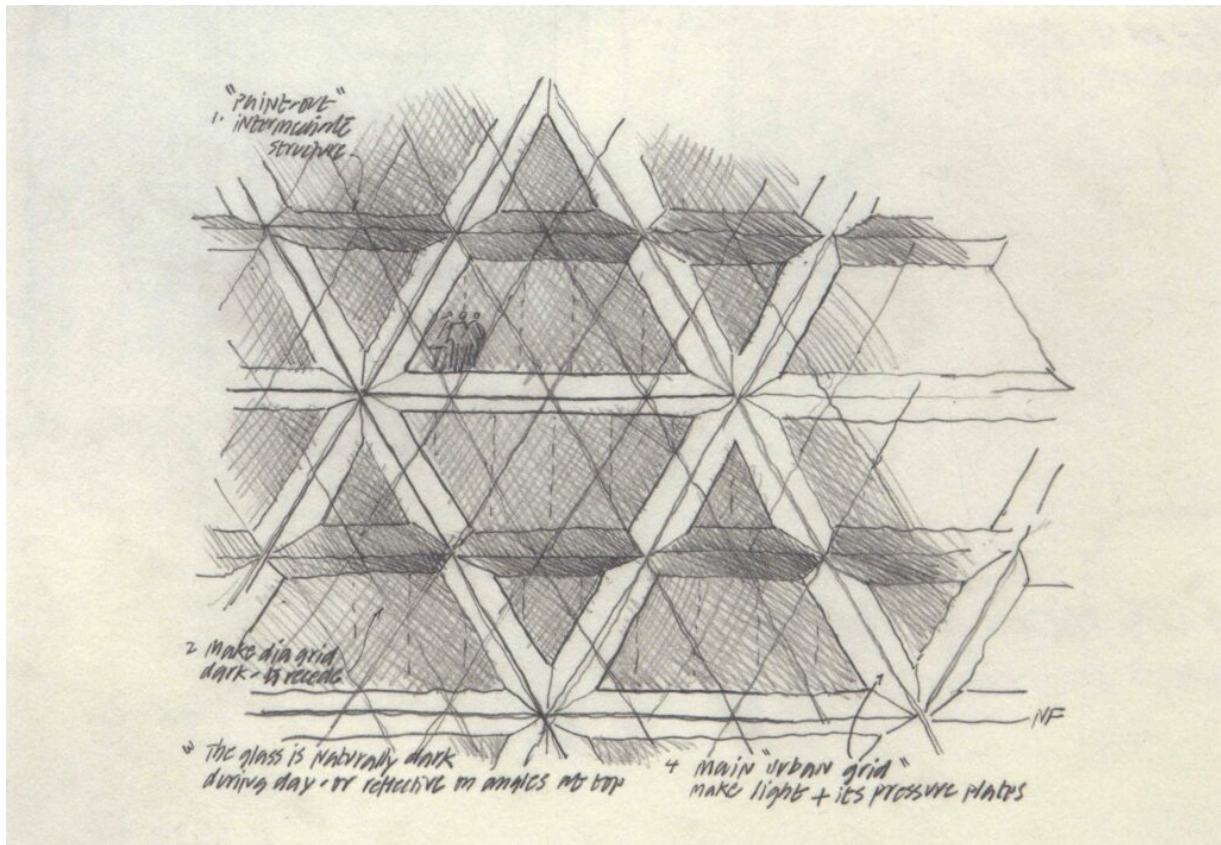 "Paint-out"
1. intermediate
structure
2 Make diagrid
dark - to recede
3 The glass is naturally dark
during day - or reflective on angles at top
4 Main "urban grid"
make light + its pressure plates
NF